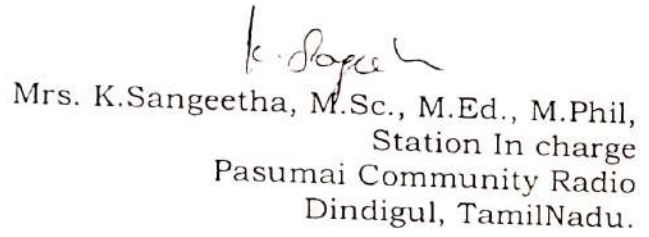 Mrs. K.Sangeetha, M.Sc., M.Ed., M.Phil,
Station In charge
Pasumai Community Radio
Dindigul, TamilNadu.